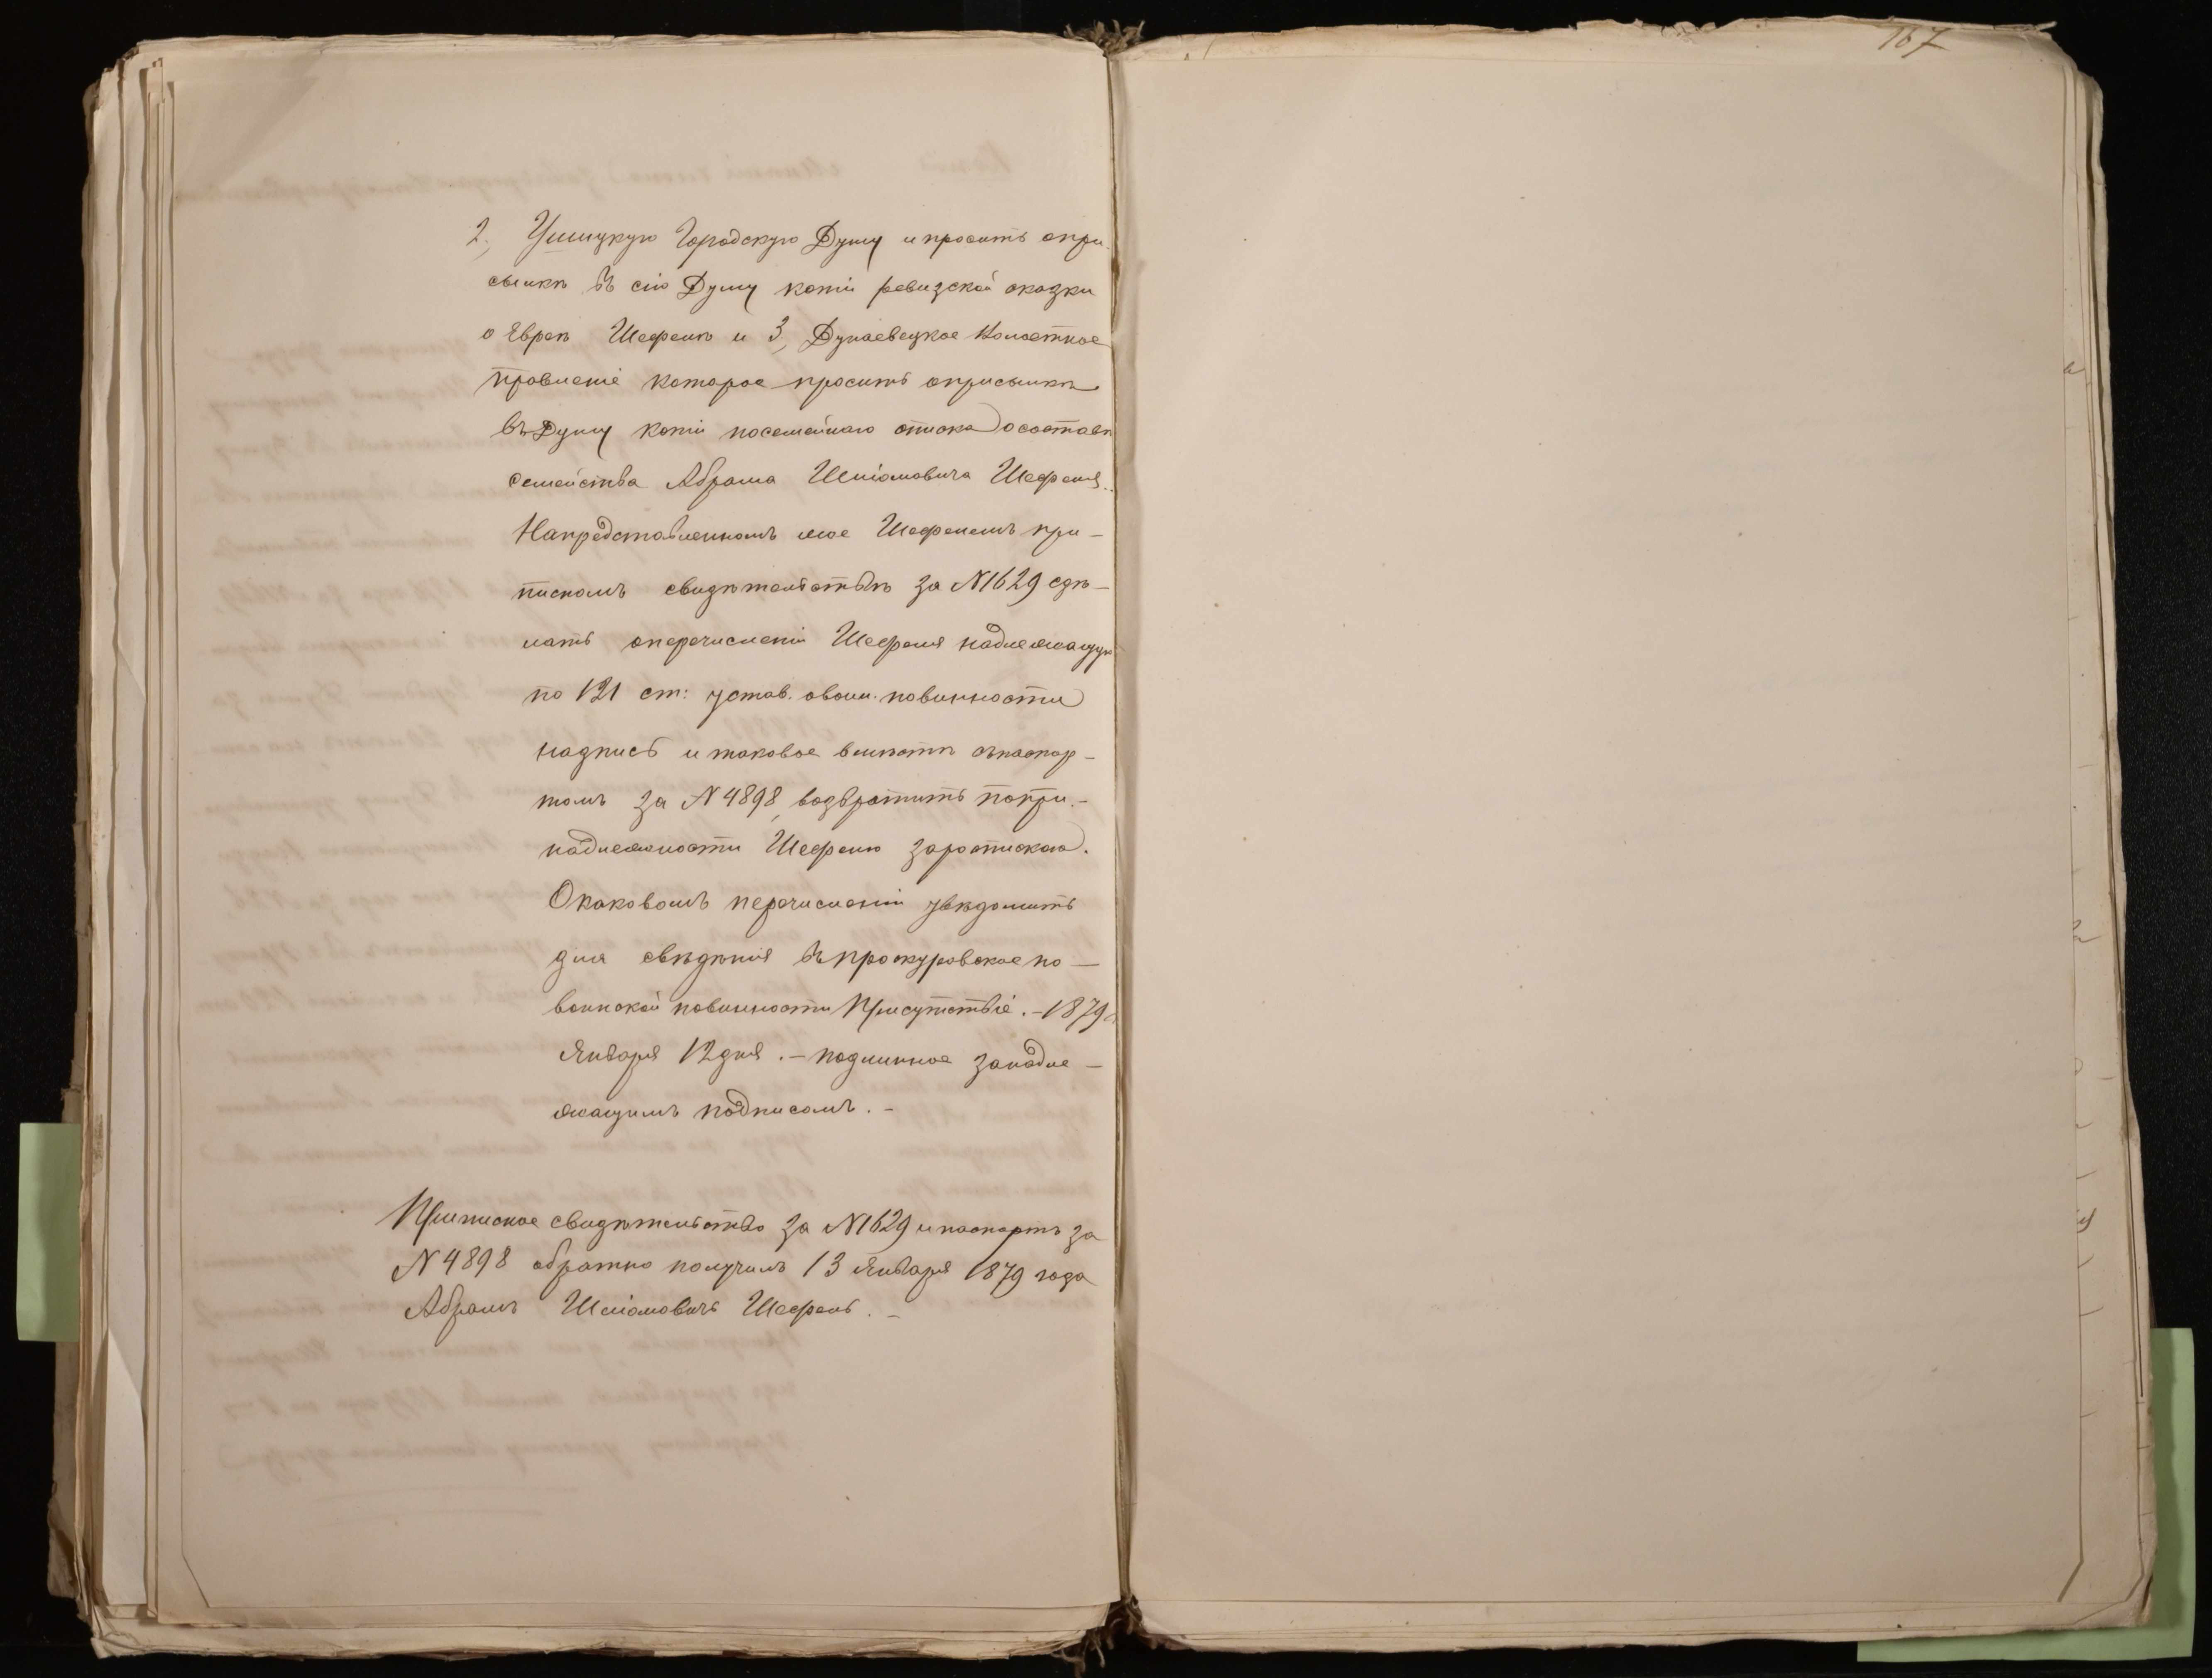 167
2, Ушицкую Городскую Думу и просить опри-
сылкѣ въ сію Думу копіи ревизской сказки
о Евреѣ Шефелѣ и 3, Дунаевецкое Волостное
правленіе которое просить оприсылкѣ
въ Думу копіи посемейнаго списка осоставѣ
семейства Абрама Шліомовича Шефеля.
Напредставленномъ мое Шефелемъ при-
писномъ свидѣтельствѣ за №1629 сдѣ-
лать оперечисленіи Шефеля надлежащую
по 121 ст: устав. овоин. повинности
надпись и таковое вмѣстѣ спаспор-
томъ за №4898, возвратить попри-
надлежности Шефелю зароспискою.
Окаковомъ перечисленіи увѣдомить
для свѣдѣнія въ проскуровское по-
воинской повинности Присутствіе. - 1879 г
Января 12 дня. - подлинное занадле-
жащимъ подписомъ. -
Приписное свидѣтельство за №1629 и паспортъ за
№4898 обратно получилъ 13 Января 1879 года
Абрамъ Шліомовичъ Шефель. -